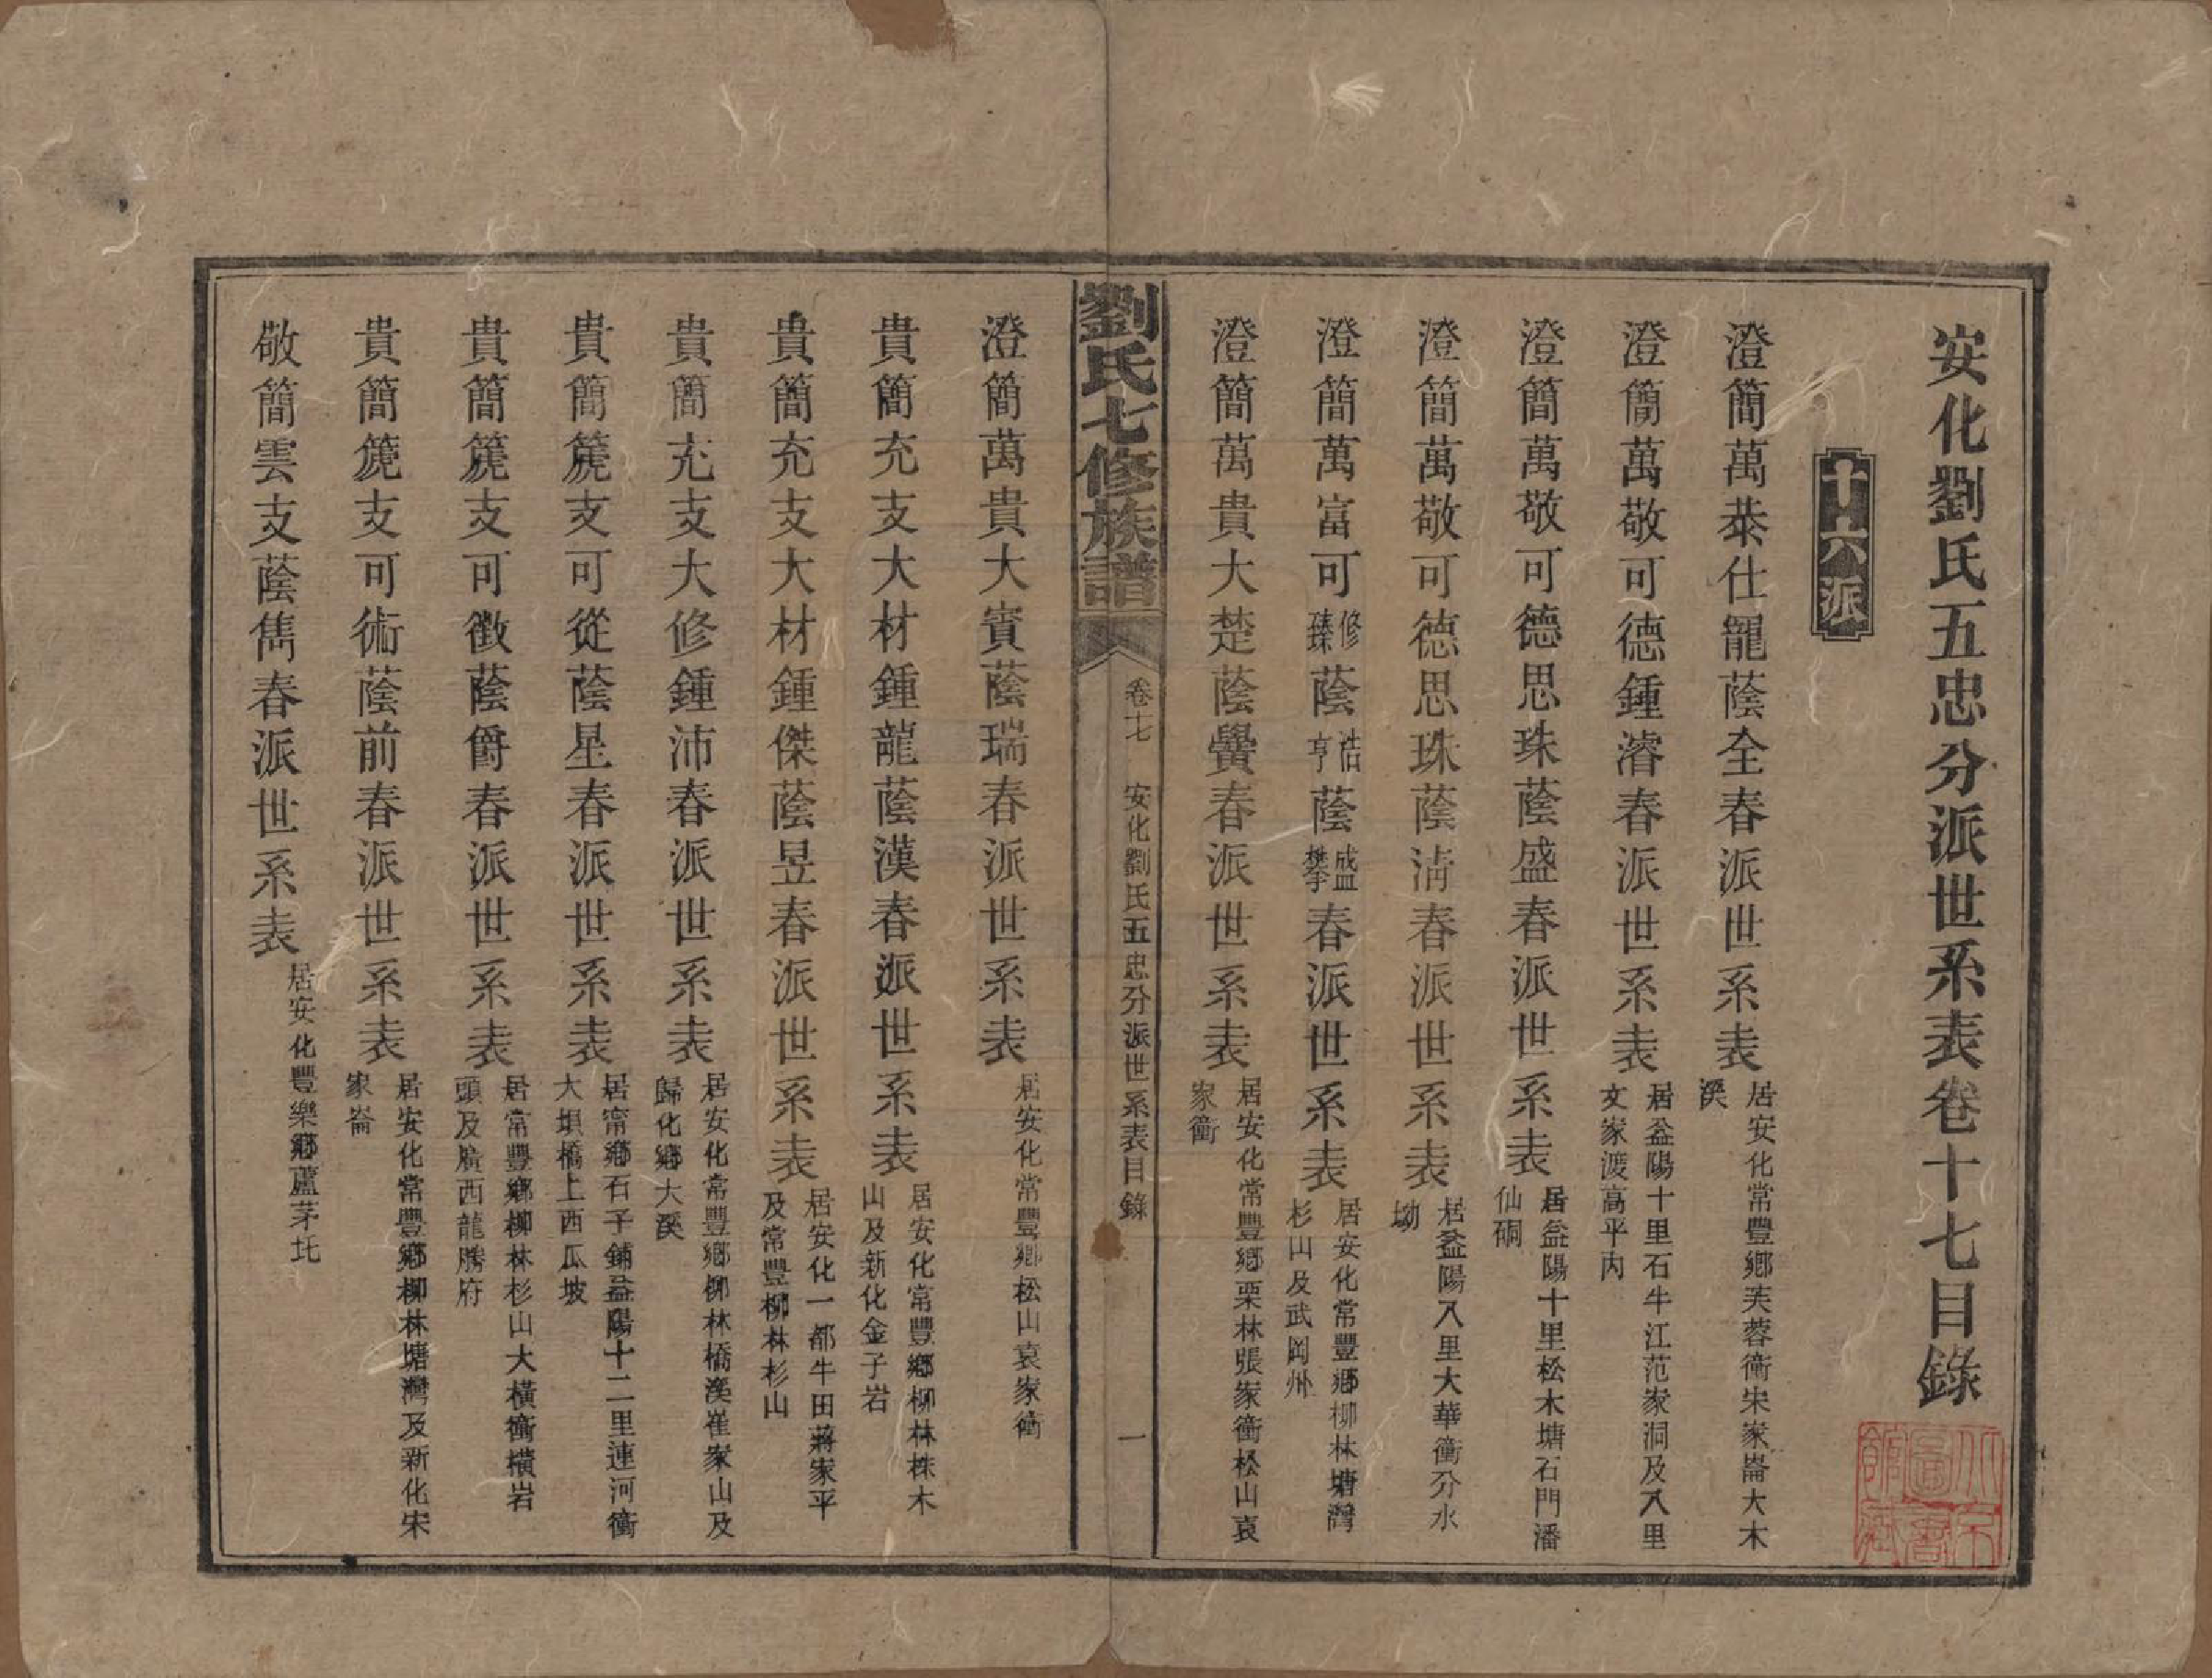 安化劉氏五忠分派世系表卷十七目錄
十六派
澄簡萬恭仕寵蔭全春派世系表 居安化常豐鄉芙蓉衝朱家崙大木溪
澄簡萬敬可德鍾濬春派世系表 居益陽十里石牛江范家洞及八里文家渡高平內
澄簡萬敬可德思珠蔭盛春派世系表 居益陽十里松木塘石門潘仙硐
澄簡萬敬可德思珠蔭清春派世系表 居益陽八里大華衝分水坳
澄簡萬富可修臻蔭浩亨蔭盛攀春派世系表 居安化常豐鄉柳林塘灣杉山及武岡州
澄簡萬貴大楚蔭黌春派世系表 居安化常豐鄉栗林張家衝松山袁家衝
劉氏七修族譜
卷十七 安化劉氏五忠分派世系表目錄 一
澄簡萬貴大賓蔭瑞春派世系表 居安化常豐鄉松山袁家衝
貴簡充支大材鍾龍蔭漢春派世系表 居安化常豐鄉柳林株木山及新化金子岩
貴簡充支大材鍾傑蔭昱春派世系表 居安化一都牛田蔣家平及常豐柳林杉山
貴簡充支大修鍾沛春派世系表 居安化常豐鄉柳林橋溪崔家山及歸化鄉大溪
貴簡篪支可從蔭星春派世系表 居甯鄉石子鋪益陽十二里連河衝大垻橋上西瓜坡
貴簡篪支可徵蔭爵春派世系表 居常豐鄉柳林杉山大橫衝橫岩頭及廣西龍勝府
貴簡篪支可術蔭前春派世系表 居安化常豐鄉柳林塘灣及新化宋家崙
敬簡雲支蔭雋春派世系表 居安化豐樂鄉蘆茅圫